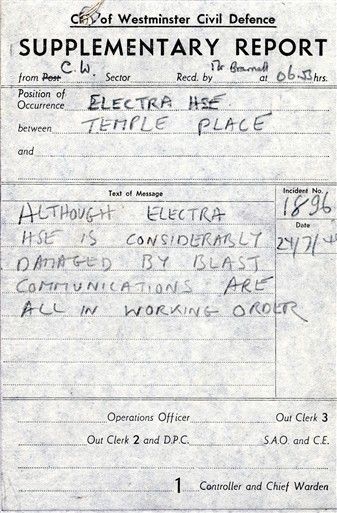 City of Westminster Civil Defence
SUPPLEMENTARY REPORT
from Post C.W. Sector Recd. by Mr at 06.53 hrs.
Position of
Occurrence ELECTRA HSE
between TEMPLE PLACE
and
Text of Message
Incident No.
ALTHOUGH ELECTRA 1896
Date
HSE IS CONSIDERABLY 24/7/44
DAMAGED BY BLAST
COMMUNICATIONS ARE
ALL IN WORKING ORDER
Operations Officer Out Clerk 3
Out Clerk 2 and D.P.C. S.A.O. and C.E.
1 Controller and Chief Warden